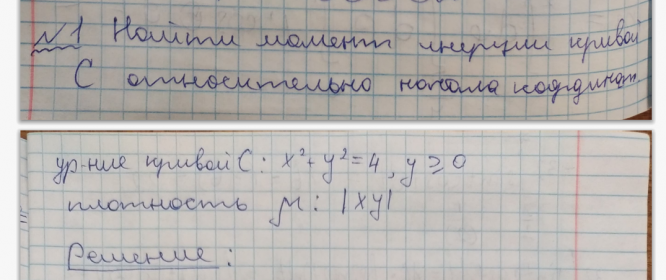 №1 Найти момент инерции кривой
С относительно начала координат.
ур-ние кривой С: x²+y²=4, y ⩾ 0
плотность μ: |xy|
Решение: